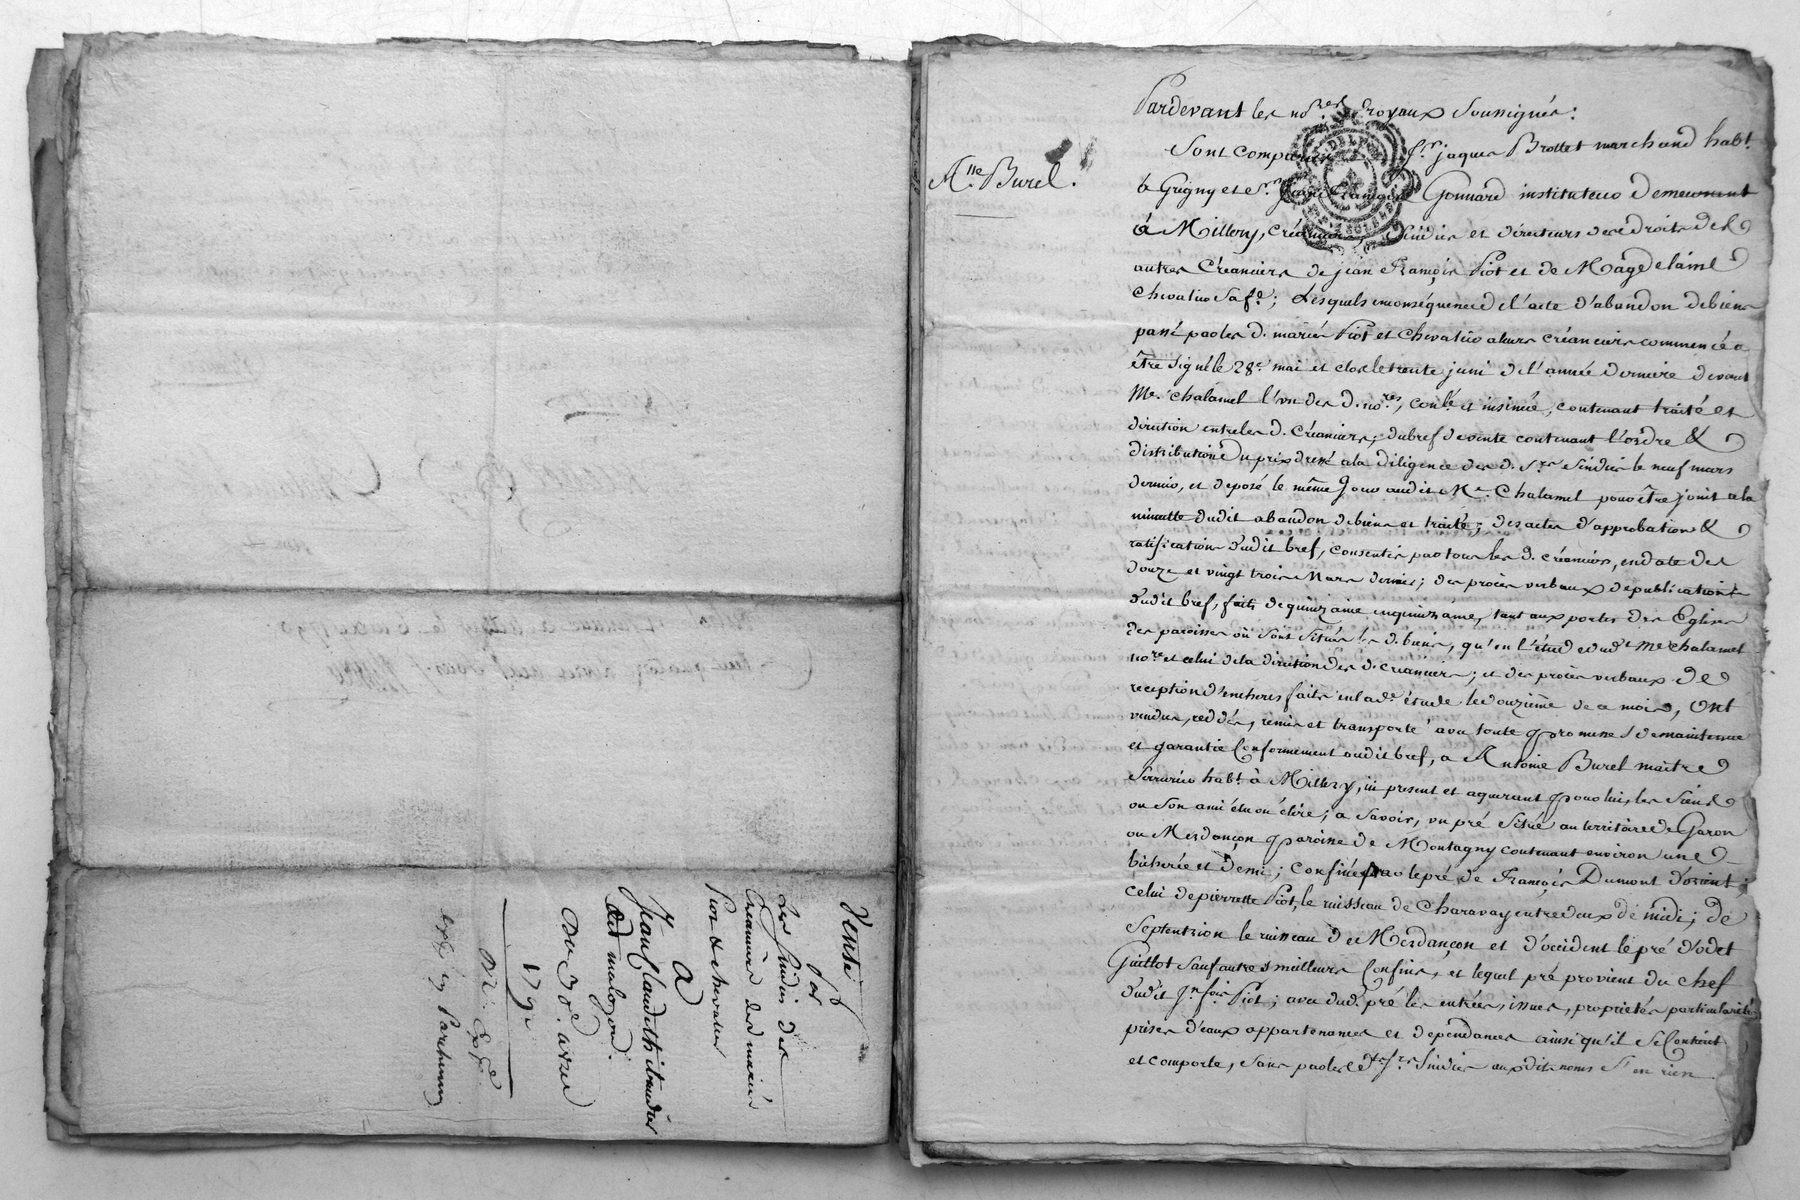 Vente
Par
les sindics des
Creanciers des d mariés
Piot & chevalier
A
Jean Claude thibaudier
dit malozon.
Du 30e. avril
1792
Pardevant les nores. royaux Soussignés:
Sont comparus Sr. jaques Brottet marchand habt.
Ane. Burel.
à Grigny et Sr. jean françois Gonnard instituteur demeurant
à Millery, Créanciers, Sindics et directeurs des droits des
autres Créanciers de jean François Piot et de Magdelaine
Chevalier Sa fe.; Lesquels en conséquence de l'acte d'abandon de biens
passé par les d. mariés Piot et Chevalier a leurs créanciers commencé a
être Signé le 28e. mai et clos le trente juin de l'année derniere devant
Me. Chalamel l'un des d. nores, conlé. et insinué, contenant traité et
direction entre les d. Créanciers; du bref de vente contenant l'ordre &
distribution du prix dressé a la diligence des d. Srs. Sindics le neuf mars
dernier, et deposé le même Jour audit Me. Chalamel pour être joint a la
minutte dudit abandon de biens et traité; des actes d'approbation &
ratification dudit bref, consentis par tous les d. créanciers, en date des
douze et vingt trois Mars dernier; des procès verbaux de publications
dudit bref, faits de quinzaine en quinzaine, tant aux portes des Eglises
des paroisses où sont situés les d. biens, qu'en l'étude dudt. Me Chalamel
nore. et celui de la direction des d. créanciers; et des procès verbaux de
reception d'encheres faits en lade. étude le douzième de ce mois, Ont
vendu, cédés, remis et transporté avec toute promesse de maintenue
et garantie Conformement audit bref, a Antoine Burel maître
Serrurier habt. à Millery, ici present et aquerant pour lui, les Siens
ou Son ami élu ou à élire; a Savoir, un pré Situé au territoire de Garon
ou Merdançon paroisse de Montagny contenant environ une
bicherée et demi; Confiné par le pré de François Dumont d'orient;
celui de pierrette Piot, le ruisseau de Charavay entre deux de midi; de
Septentrion le ruisseau de Merdançon et d'occident le pré d'odet
Guillot Sauf autres meilleurs Confins, et lequel pré provient du chef
dudit Jn. fois. Piot; avec dudt. pré les entrées, issues, proprietés particularités
prises d'eaux appartenances et dependances ainsi qu'il Se Contient
et comporte, Sans par les d. Srs. Sindics auxdits noms S'en rien